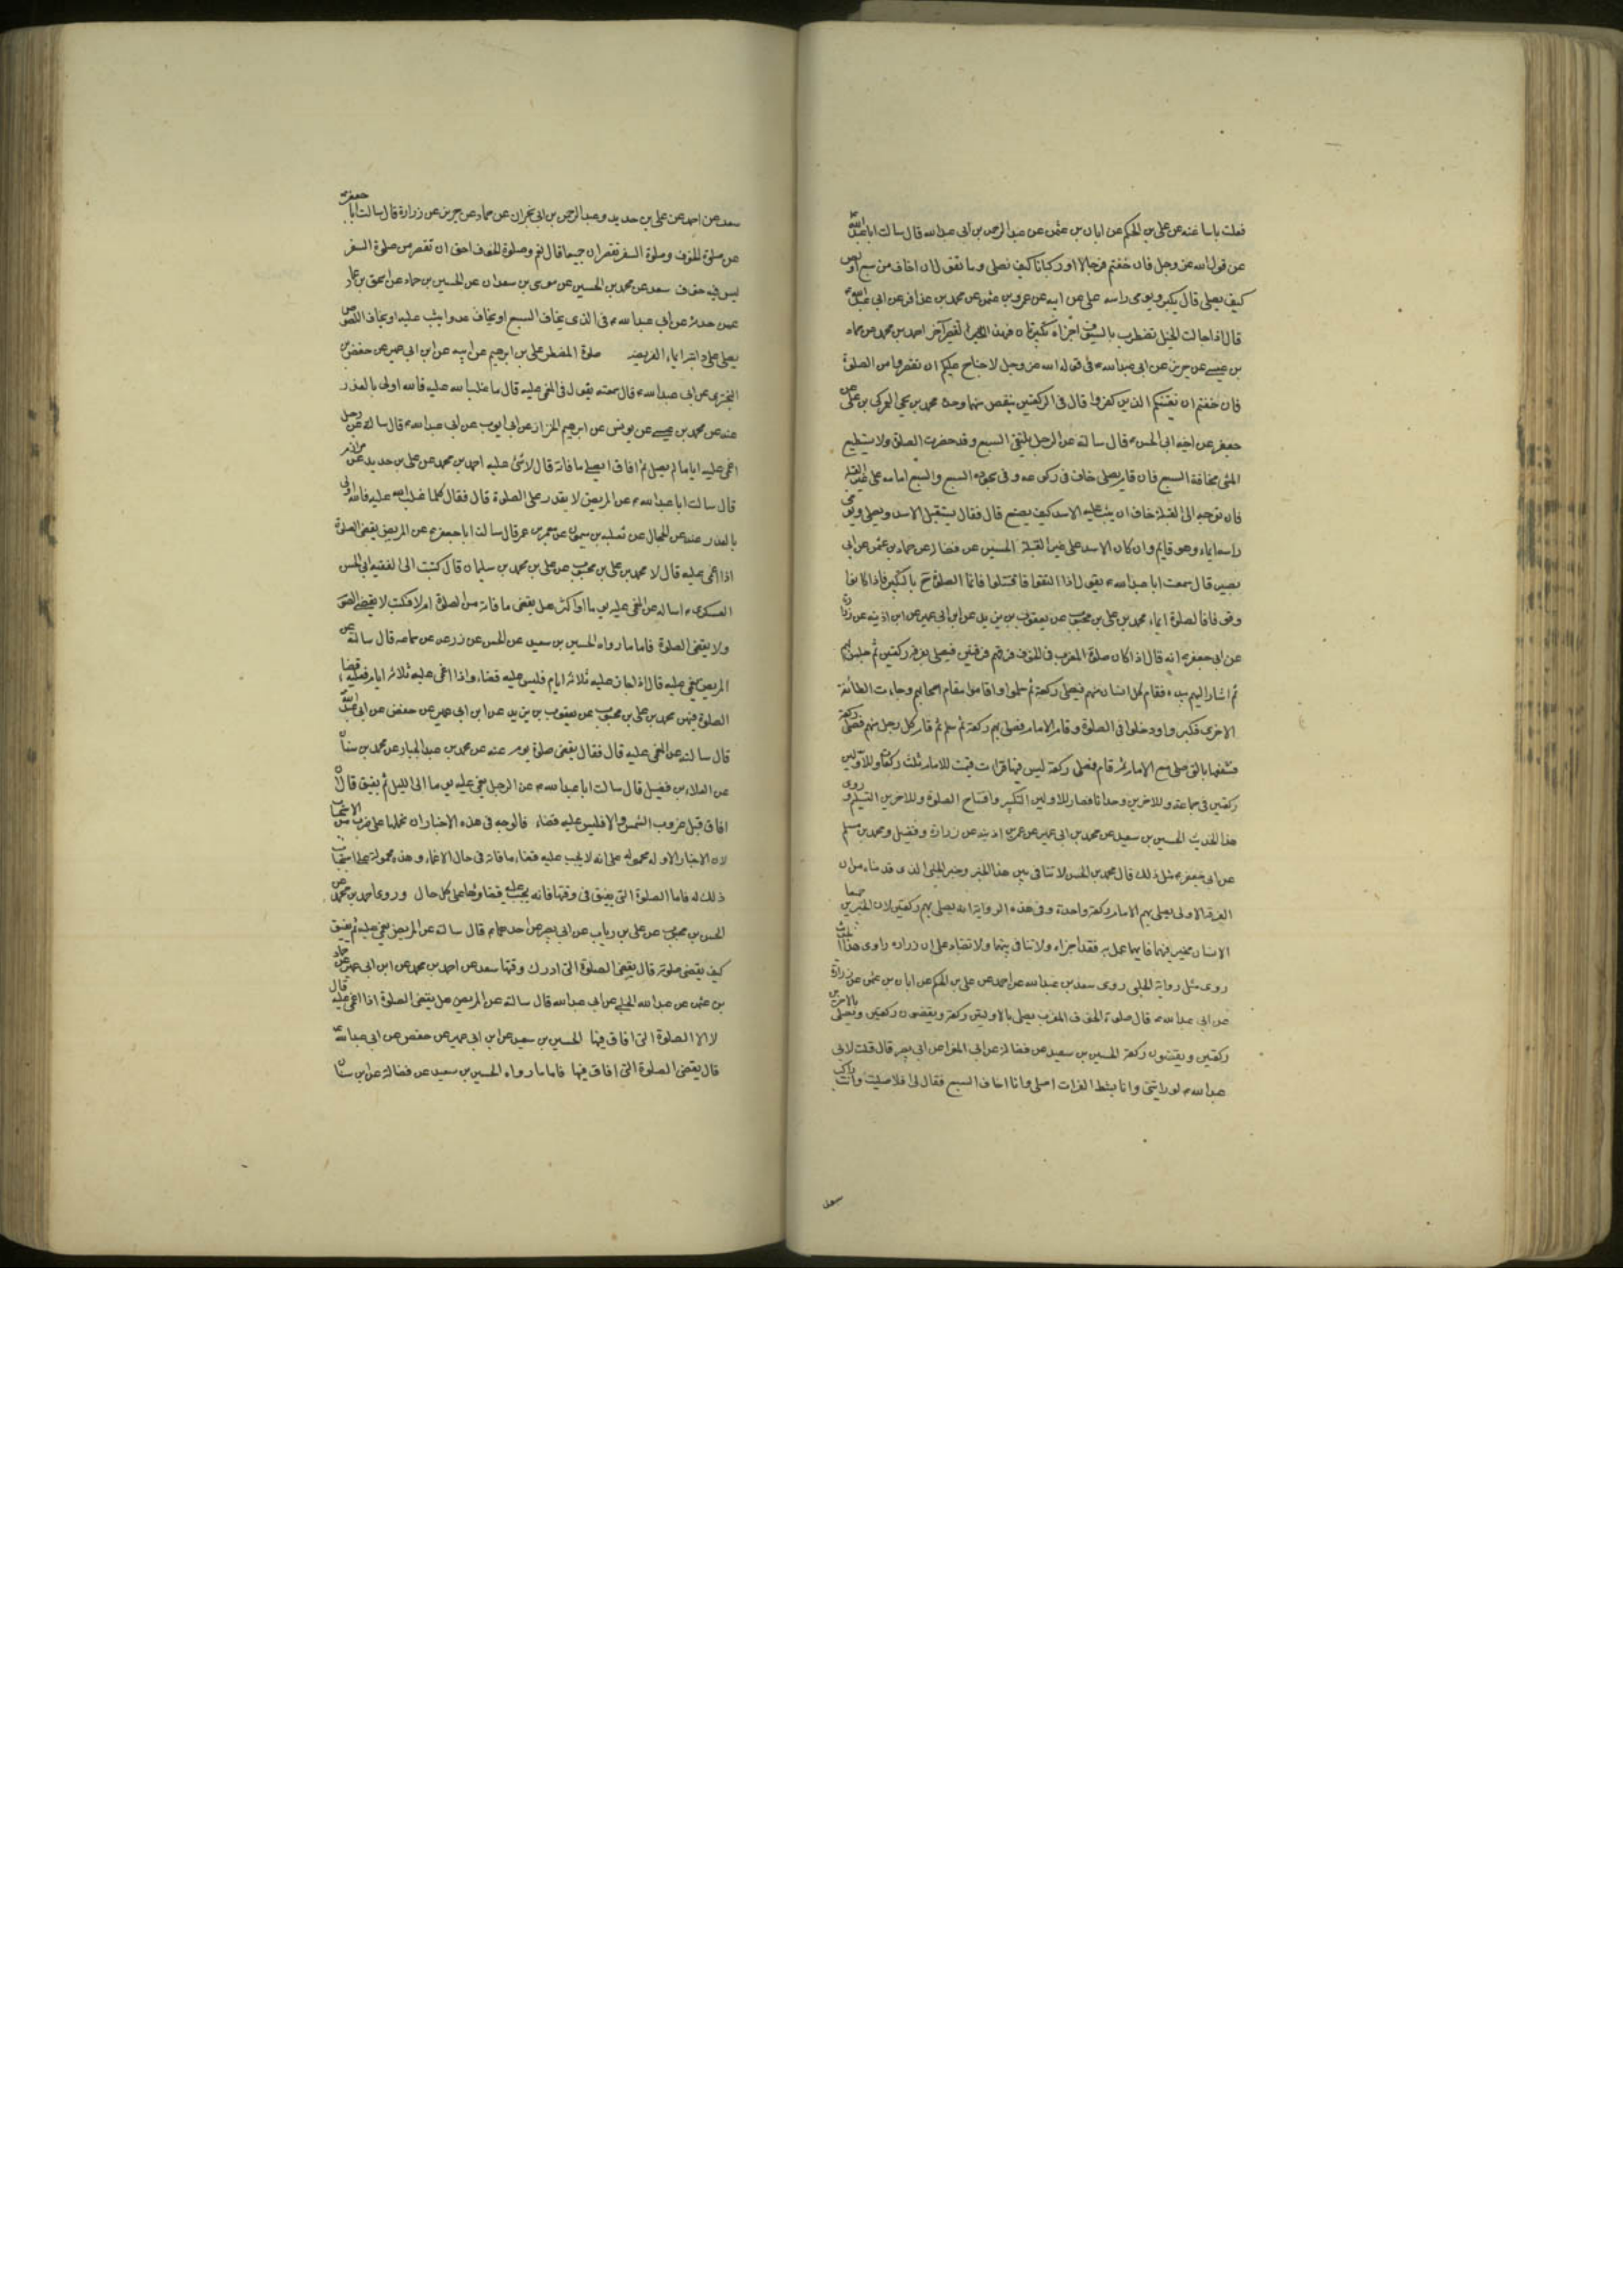 فعلت باسا عنه عن علي بن الحكم عن ابان بن عثمن عن عبد الرحمن بن ابي عبد الله قال سالت ابا عبد الله
عن قول الله عز وجل فان خفتم فرجالا او ركبانا كيف نصلي وما نقول ان اخاف من سبع او لص
كيف يصلي قال يكبر ويومي راسه علي عن ابيه عن عمرو بن عثمن عن محمد بن عذافر عن ابي عبد الله
قال اذا جالت الخيل تضطرب بالسيوف اجزاه تكبيرتان فهذا التقصير آخر احمد بن محمد عن حماد
بن عيسى عن حريز عن ابي عبد الله ع في قول الله عز وجل لا جناح عليكم ان تقصروا من الصلوة
فان خفتم ان يفتنكم الذين كفروا قال في الركعتين ينقص منهما وحدة محمد بن يحيى العمركي بن علي عن
جعفر عن اخيه ابي الحسن ع قال سالته عن الرجل يلتقي السبع وقد حضرت الصلوة ولا يستطيع
المشي مخافة السبع فان قام يصلي خاف في ركوعه وفي سجوده السبع والسبع امامه على غير القبلة
فان توجه الى القبلة خاف ان يثب عليه الاسد كيف يصنع قال فقال يستقبل الاسد ويصلي ويومي
راسه ايماء وهو قايم وان كان الاسد على غير القبلة الحسين عن فضالة عن حماد بن عثمن عن ابي
بصير قال سمعت ابا عبد الله ع يقول اذا التقوا فاقتتلوا فانما الصلوة ح بالتكبير فاذا كانوا
وقوفا فالصلوة ايماء محمد بن علي بن محبوب عن يعقوب بن يزيد عن ابن ابي عمير عن ابن اذينه عن زرارة
عن ابي جعفر ع انه قال اذا كان صلوة المغرب في الخوف فرقهم فرقتين فيصلي بفرقة ركعتين ثم جلس بهم
ثم اشار اليهم بيده فقام كل انسان منهم فيصلي ركعة ثم سلموا وقاموا مقام اصحابهم وجاءت الطائفة
الاخرى فكبروا ودخلوا في الصلوة وقام الامام فصلى بهم ركعة ثم سلم ثم قام كل رجل منهم فصلى ركعة
فشفعها بالتي صلى مع الامام ثم قام فصلى ركعة ليس فيها قراءة فتمت للامام ثلث ركعات وللاولين
ركعتين في جماعة وللاخرين وحدانا فصار للاولين التكبير وافتتاح الصلوة وللاخرين التسليم وروى
هذا الحديث الحسين بن سعيد عن محمد بن ابي عمير عن عمر بن اذينه عن زرارة وفضيل ومحمد بن مسلم
عن ابي جعفر ع مثل ذلك قال محمد بن الحسن لا تنافي بين هذا الخبر وخبر الحلبي الذي قدمناه من ان
الفرقة الاولى يصلي بهم الامام ركعة واحدة وفي هذه الرواية انه يصلي بهم ركعتين لان الخبرين جميعا
الانسان مخير فيهما فايهما عمل به فقد اجزاه ولا تنافي بينهما ولا تضاد على ان زراره راوي هذا الحديث
روى مثل رواية الحلبي روى سعد بن عبد الله عن احمد عن علي بن الحكم عن ابان بن عثمن عن زرارة
عن ابي عبد الله ع قال صلوة الخوف المغرب يصلي بالاولين ركعة ويقضون ركعتين ويصلي بالاخرين
ركعتين ويقضون ركعة الحسين بن سعيد عن فضالة عن ابي المغرا عن ابي بصير قال قلت لابي
عبد الله ع لو رايتني وانا بشط الفرات اصلي وانا اخاف السبع فقال لي افلا صليت وانت راكب
سعد
سعد عن احمد عن علي بن حديد وعبد الرحمن بن ابي نجران عن حماد عن حريز عن زرارة قال سالت ابا جعفر ع
عن صلوة الخوف وصلوة السفر تقصران جميعا قال نعم وصلوة الخوف احق ان تقصر من صلوة السفر
ليس فيه خوف سعد عن محمد بن الحسين عن موسى بن سعدان عن الحسين بن حماد عن اسحق بن عمار
عمن حدثه عن ابي عبد الله ع في الذي يخاف السبع او يخاف عدوا يثب عليه او يخاف اللصوص
يصلي على دابته ايماء الفريضة صلوة المضطر علي بن ابرهيم عن ابيه عن ابن ابي عمير عن حفص بن
البختري عن ابي عبد الله ع قال سمعته يقول في المغمى عليه قال ما غلب الله عليه فالله اولى بالعذر
عنه عن محمد بن عيسى عن يونس عن ابرهيم الخزاز عن ابي ايوب عن ابي عبد الله ع قال سالته عن رجل
اغمي عليه اياما لم يصل ثم افاق ايصلي ما فاته قال لا شئ عليه احمد بن محمد عن علي بن حديد عن مرازم
قال سالت ابا عبد الله ع عن المريض لا يقدر على الصلوة قال فقال كلما غلب الله عليه فالله اولى
بالعذر عنه عن الحجال عن ثعلبه بن ميمون عن معمر بن عمر قال سالت ابا جعفر ع عن المريض يقضي الصلوة
اذا اغمي عليه قال لا محمد بن علي بن محبوب عن علي بن محمد بن سليمان قال كتبت الى الفقيه ابي الحسن
العسكري ع اساله عن المغمى عليه يوما او اكثر هل يقضي ما فاته من الصلوة ام لا فكتب لا يقضي الصوم
ولا يقضي الصلوة فاما ما رواه الحسين بن سعيد عن الحسن عن زرعه عن سماعه قال سالته عن
المريض يغمى عليه قال اذا جاز عليه ثلاثة ايام فليس عليه قضاء واذا اغمي عليه ثلاثة ايام فعليه قضاء
الصلوة فيهن محمد بن علي بن محبوب عن يعقوب بن يزيد عن ابن ابي عمير عن حفص عن ابي عبد الله
قال سالته عن المغمى عليه قال فقال يقضي صلوة يوم عنه عن محمد بن عبد الجبار عن محمد بن سنان
عن العلاء بن فضيل قال سالت ابا عبد الله ع عن الرجل يغمى عليه يوما الى الليل ثم يفيق قال ان
افاق قبل غروب الشمس والا فليس عليه قضاء فالوجه في هذه الاخبار ان نحملها على ضرب من الاستحباب
لان الاخبار الاوله محموله على انه لا يجب عليه قضاء ما فاته في حال الاغماء وهذه محمولة على استحباب
ذلك له فاما الصلوة التي يفيق في وقتها فانه يجب عليه قضاؤها على كل حال وروى احمد بن محمد عن
الحسن بن محبوب عن علي بن رياب عن ابي بصير عن احدهما ع قال سالته عن المريض يغمى عليه ثم يفيق
كيف يقضي صلوته قال يقضي الصلوة التي ادرك وقتها سعد عن احمد بن محمد عن ابن ابي عمير عن حماد
بن عثمن عن عبد الله الحلبي عن ابي عبد الله قال سالته عن المريض هل يقضي الصلوة اذا اغمي عليه قال
لا الا الصلوة التي افاق فيها الحسين بن سعيد عن ابن ابي عمير عن حفص عن ابي عبد الله ع
قال يقضي الصلوة التي افاق فيها فاما ما رواه الحسين بن سعيد عن فضالة عن ابن سنان